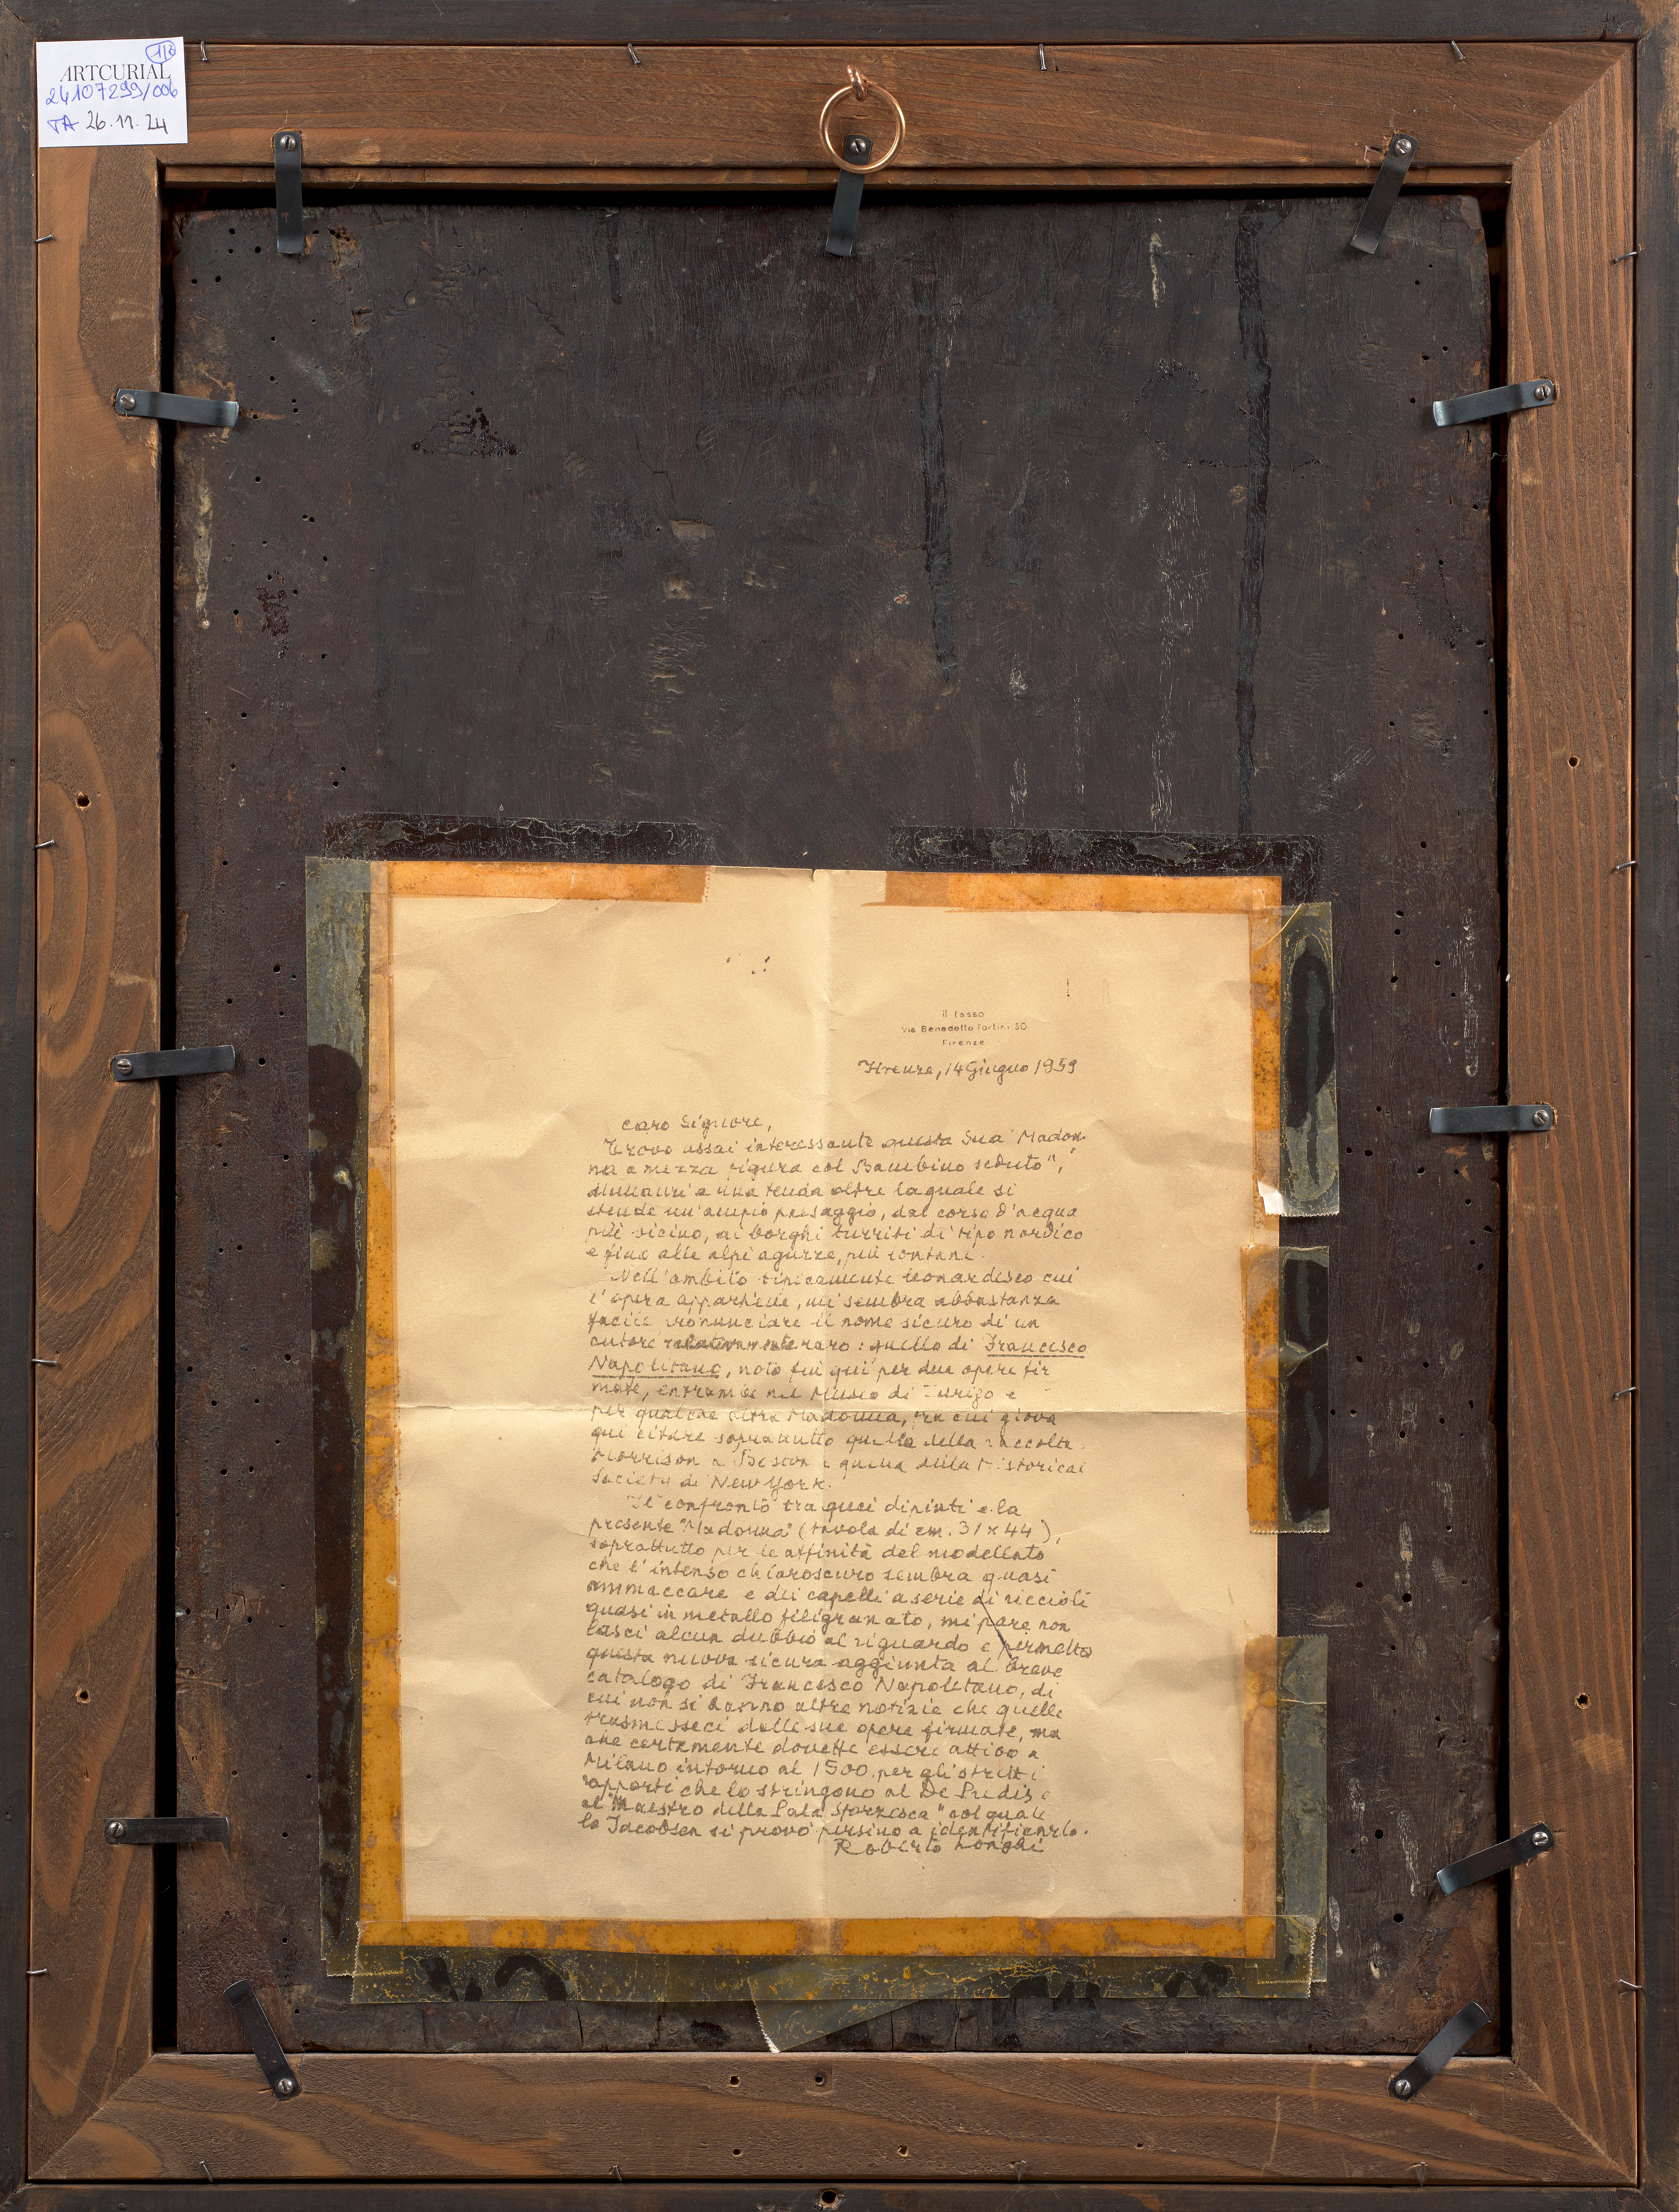 1/2
ARTCURIAL
24107299/006
TA 26.11.24
il tasso
Via Benedetto Fortini 30
Firenze
Firenze, 14 Giugno 1959
Caro Signore,
Trovo assai interessante questa Sua "Madon
na a mezza figura col Bambino seduto",
dinnanzi a una tenda oltre la quale si
stende un'ampio paesaggio, dal corso d'acqua
più vicino, ai borghi turriti di tipo nordico
e fino alle alpi aguzze, più lontani.
Nell'ambito tipicamente leonardesco cui
l'opera appartiene, mi sembra abbastanza
facile pronunciare il nome sicuro di un
autore relativamente raro: quello di Francesco
Napolitano, noto fin qui per due opere fir
mate, entrambe nel Museo di Zurigo e
per qualche altra Madonna, tra cui giova
qui citare soprattutto quella della raccolta
Morrison a Boston e quella della Historical
Society di New York.
Il confronto tra quei dipinti e la
presente "Madonna" (tavola di cm. 31 x 44),
soprattutto per le affinità del modellato
che l'intenso chiaroscuro sembra quasi
ammaccare e dei capelli a serie di riccioli
quasi in metallo filigranato, mi pare non
lasci alcun dubbio al riguardo e permetta
questa nuova sicura aggiunta al breve
catalogo di Francesco Napoletano, di
cui non si hanno altre notizie che quelle
trasmesseci dalle sue opere firmate, ma
che certamente dovette essere attivo a
Milano intorno al 1500, per gli stretti
rapporti che lo stringono al De Predis e
al "Maestro della Pala Sforzesca" col quale
lo Jacobsen si provò persino a identificarlo.
Roberto Longhi